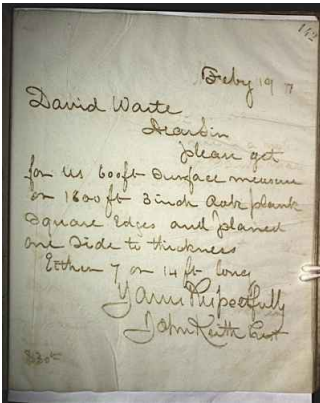 142
Feby 19 7
David Waite
Dear Sir
please get
for us 600ft Surface measure
or 1800 ft 3 inch Oak plank
Square Edges and planed
one Side to thickness
Either 7 or 14 ft long
Yours Respectfully
John Keith